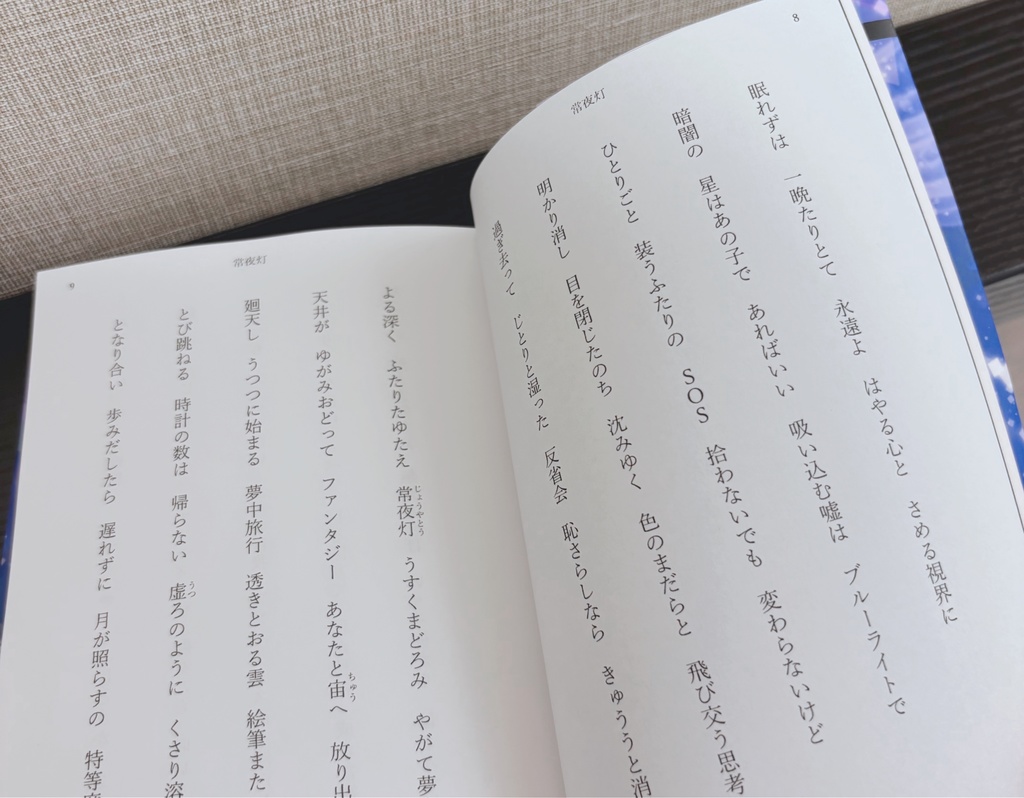 8
常夜灯
眠れずは　一晩たりとて　永遠よ　はやる心と　さめる視界に
暗闇の　星はあの子で　あればいい　吸い込む嘘は　ブルーライトで
ひとりごと　装うふたりの　SOS　拾わないでも　変わらないけど
明かり消し　目を閉じたのち　沈みゆく　色のまだらと　飛び交う思考
過ぎ去って　じとりと湿った　反省会　恥さらしなら　きゅうっと消
常夜灯
9
よる深く　ふたりたゆたえ　常夜灯　うすくまどろみ　やがて夢
じょうやとう
天井が　ゆがみおどって　ファンタジー　あなたと宙へ　放り出
ちゅう
廻天し　うつつに始まる　夢中旅行　透きとおる雲　絵筆また
とび跳ねる　時計の数は　帰らない　虚ろのように　くさり溶
うつ
となり合い　歩みだしたら　遅れずに　月が照らすの　特等